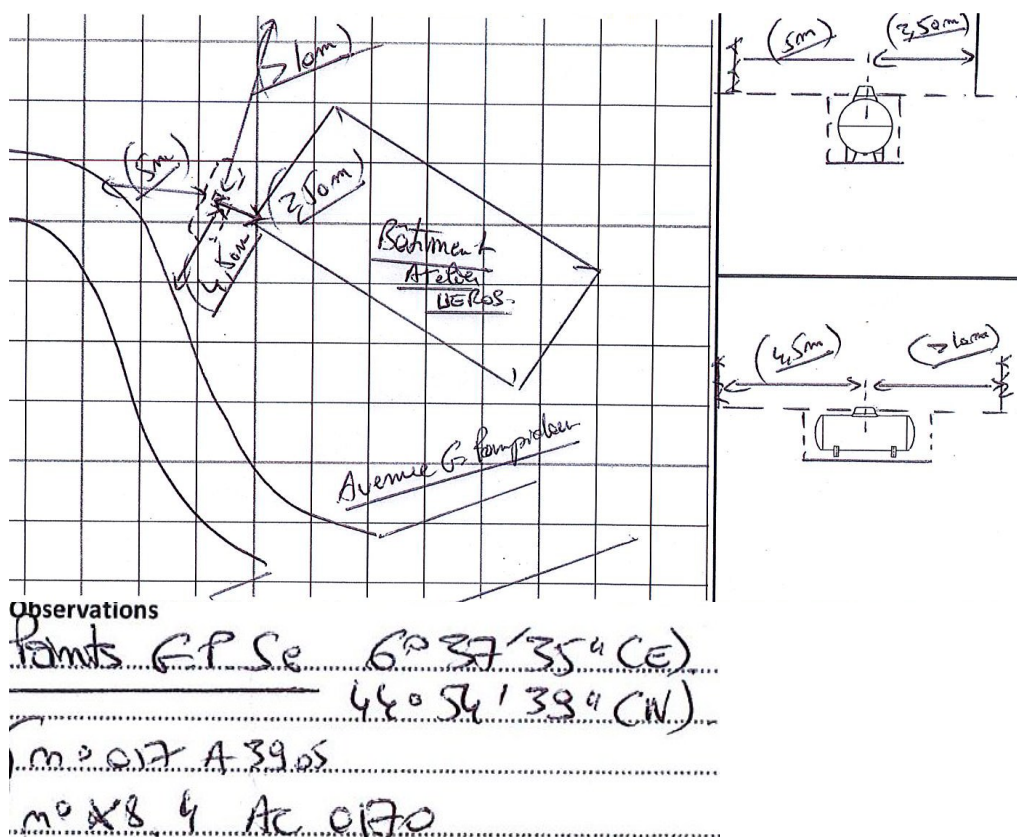 (> 10m)
(5m)
(3,50m)
(4,50m)
Bâtiment
Atelier
Avenue G. Pompidou
(5m) (3,50m)
(4,5m) (> 10m)
Observations
Points G.P.S. 6° 37' 35" (E)
44° 54' 39" (N)
n° 017 A 3905
n° 8 4 AC 0170